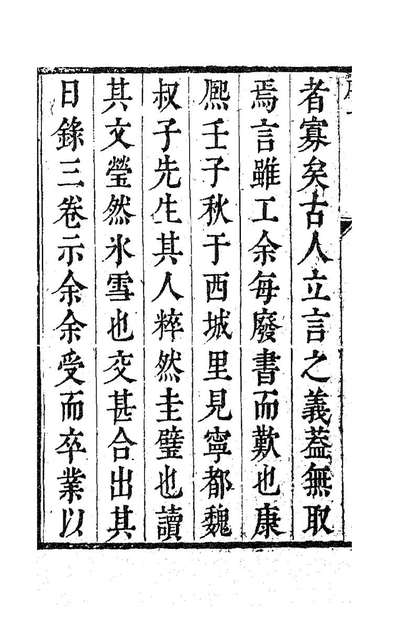 者寡矣古人立言之義蓋無取
焉言雖工余每廢書而歎也康
熈壬子秋于西城里見寧都魏
叔子先生其人粹然圭璧也讀
其文瑩然氷雪也交甚合出其
日錄三卷示余余受而卒業以